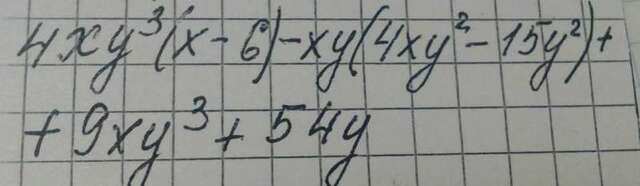 4xy³(x-6)-xy(4xy²-15y²)+
+9xy³+54y